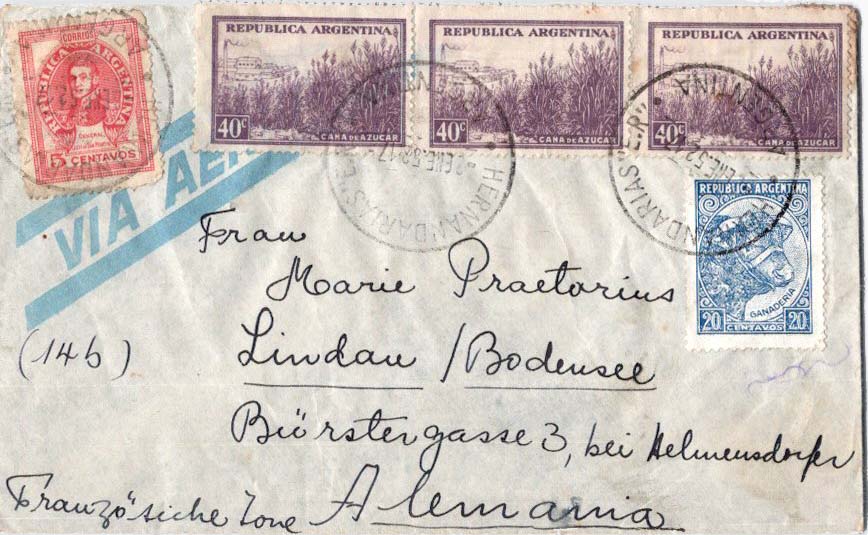 CORREOS
REPUBLICA ARGENTINA
GENERAL
5 CENTAVOS
REPUBLICA ARGENTINA
40c
CAÑA DE AZUCAR
REPUBLICA ARGENTINA
40c
CAÑA DE AZUCAR
REPUBLICA ARGENTINA
40c
CAÑA DE AZUCAR
HERNANDARIAS "E.R"
ENE.52
REPUBLICA ARGENTINA
GANADERIA
20 CENTAVOS 20
VIA AER
Frau
Marie Praetorius
(14b) Lindau / Bodensee
Bürstergasse 3, bei Helmensdorfer
Französiche Zone Alemania